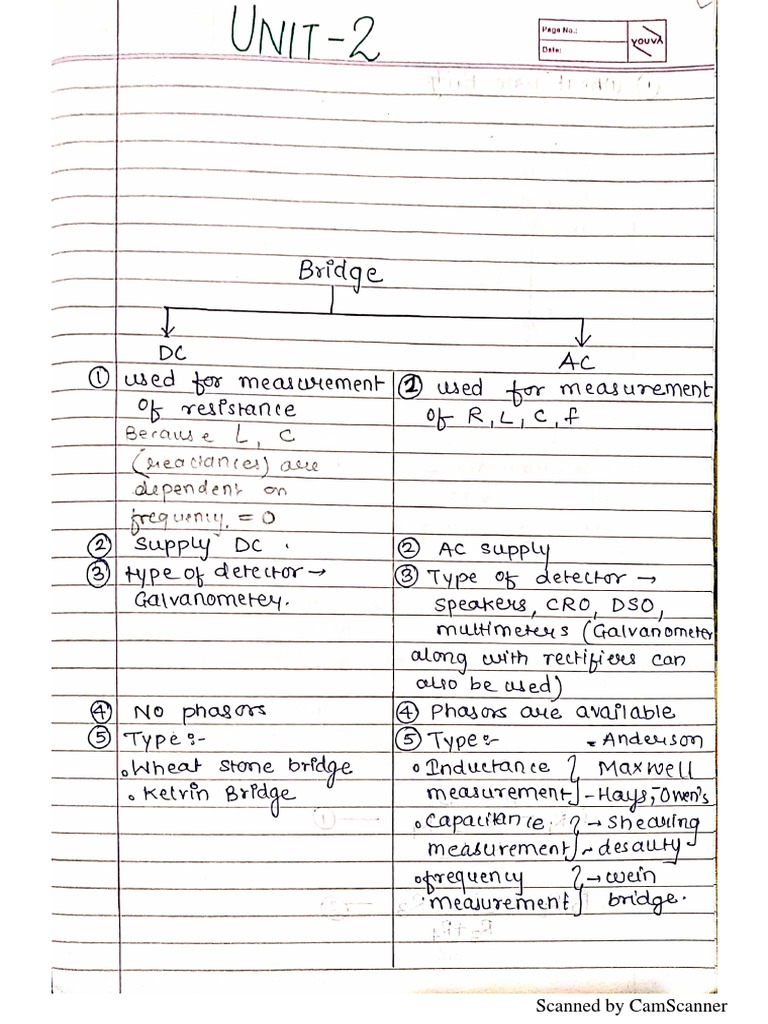 UNIT-2
Page No.:
Date:
YOUVA
Bridge
DC
① used for measurement
of resistance
Because L, C
(reactances) are
dependent on
frequency. = 0
② Supply DC.
③ type of detector →
Galvanometer.
④ No phasors
⑤ Type:-
• Wheat stone bridge
• Kelvin Bridge
AC
① used for measurement
of R, L, C, f
② AC supply
③ Type of detector →
speakers, CRO, DSO,
multimeters (Galvanometer
along with rectifiers can
also be used)
④ Phasors are available
⑤ Type:- - Anderson
• Inductance } Maxwell
measurement - Hays, Owen's
• Capacitance } → shearing
measurement - desauty
• frequency } → wein
measurement bridge.
Scanned by CamScanner